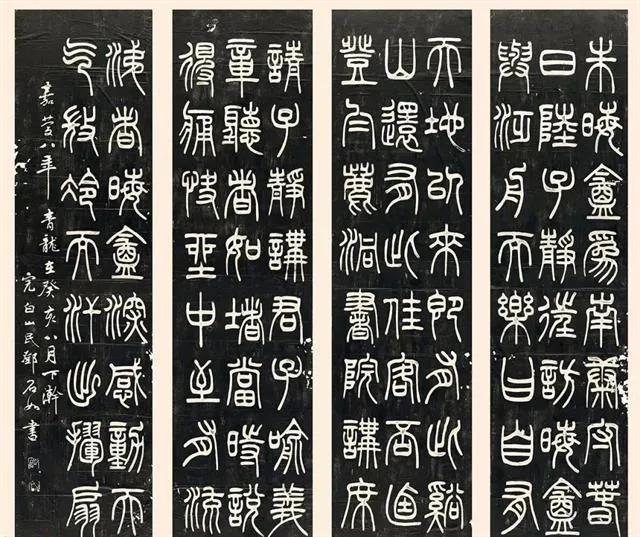 朱晦盦爲南康守萅
日陸子靜往訪晦盦
與泛舟而樂曰自有
天地以來即有此谿
山還有此佳客否
登白鹿洞書院講席
請子靜講君子喻義
章聽者如堵當時說
得痛快坐中至有流
涕者晦盦深感動天
气微冷而汗出揮扇
嘉慶八年青龍在癸亥八月下澣
完白山民鄧石如書